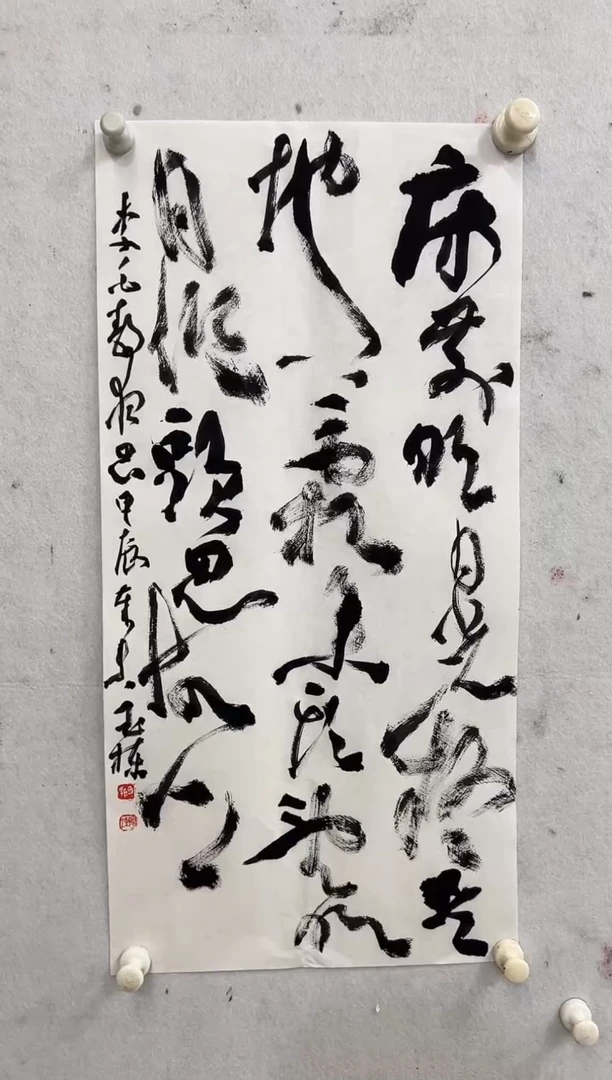 床前明月光疑是
地上霜举頭望明
月低頭思故乡
李白静夜思甲辰玉栋